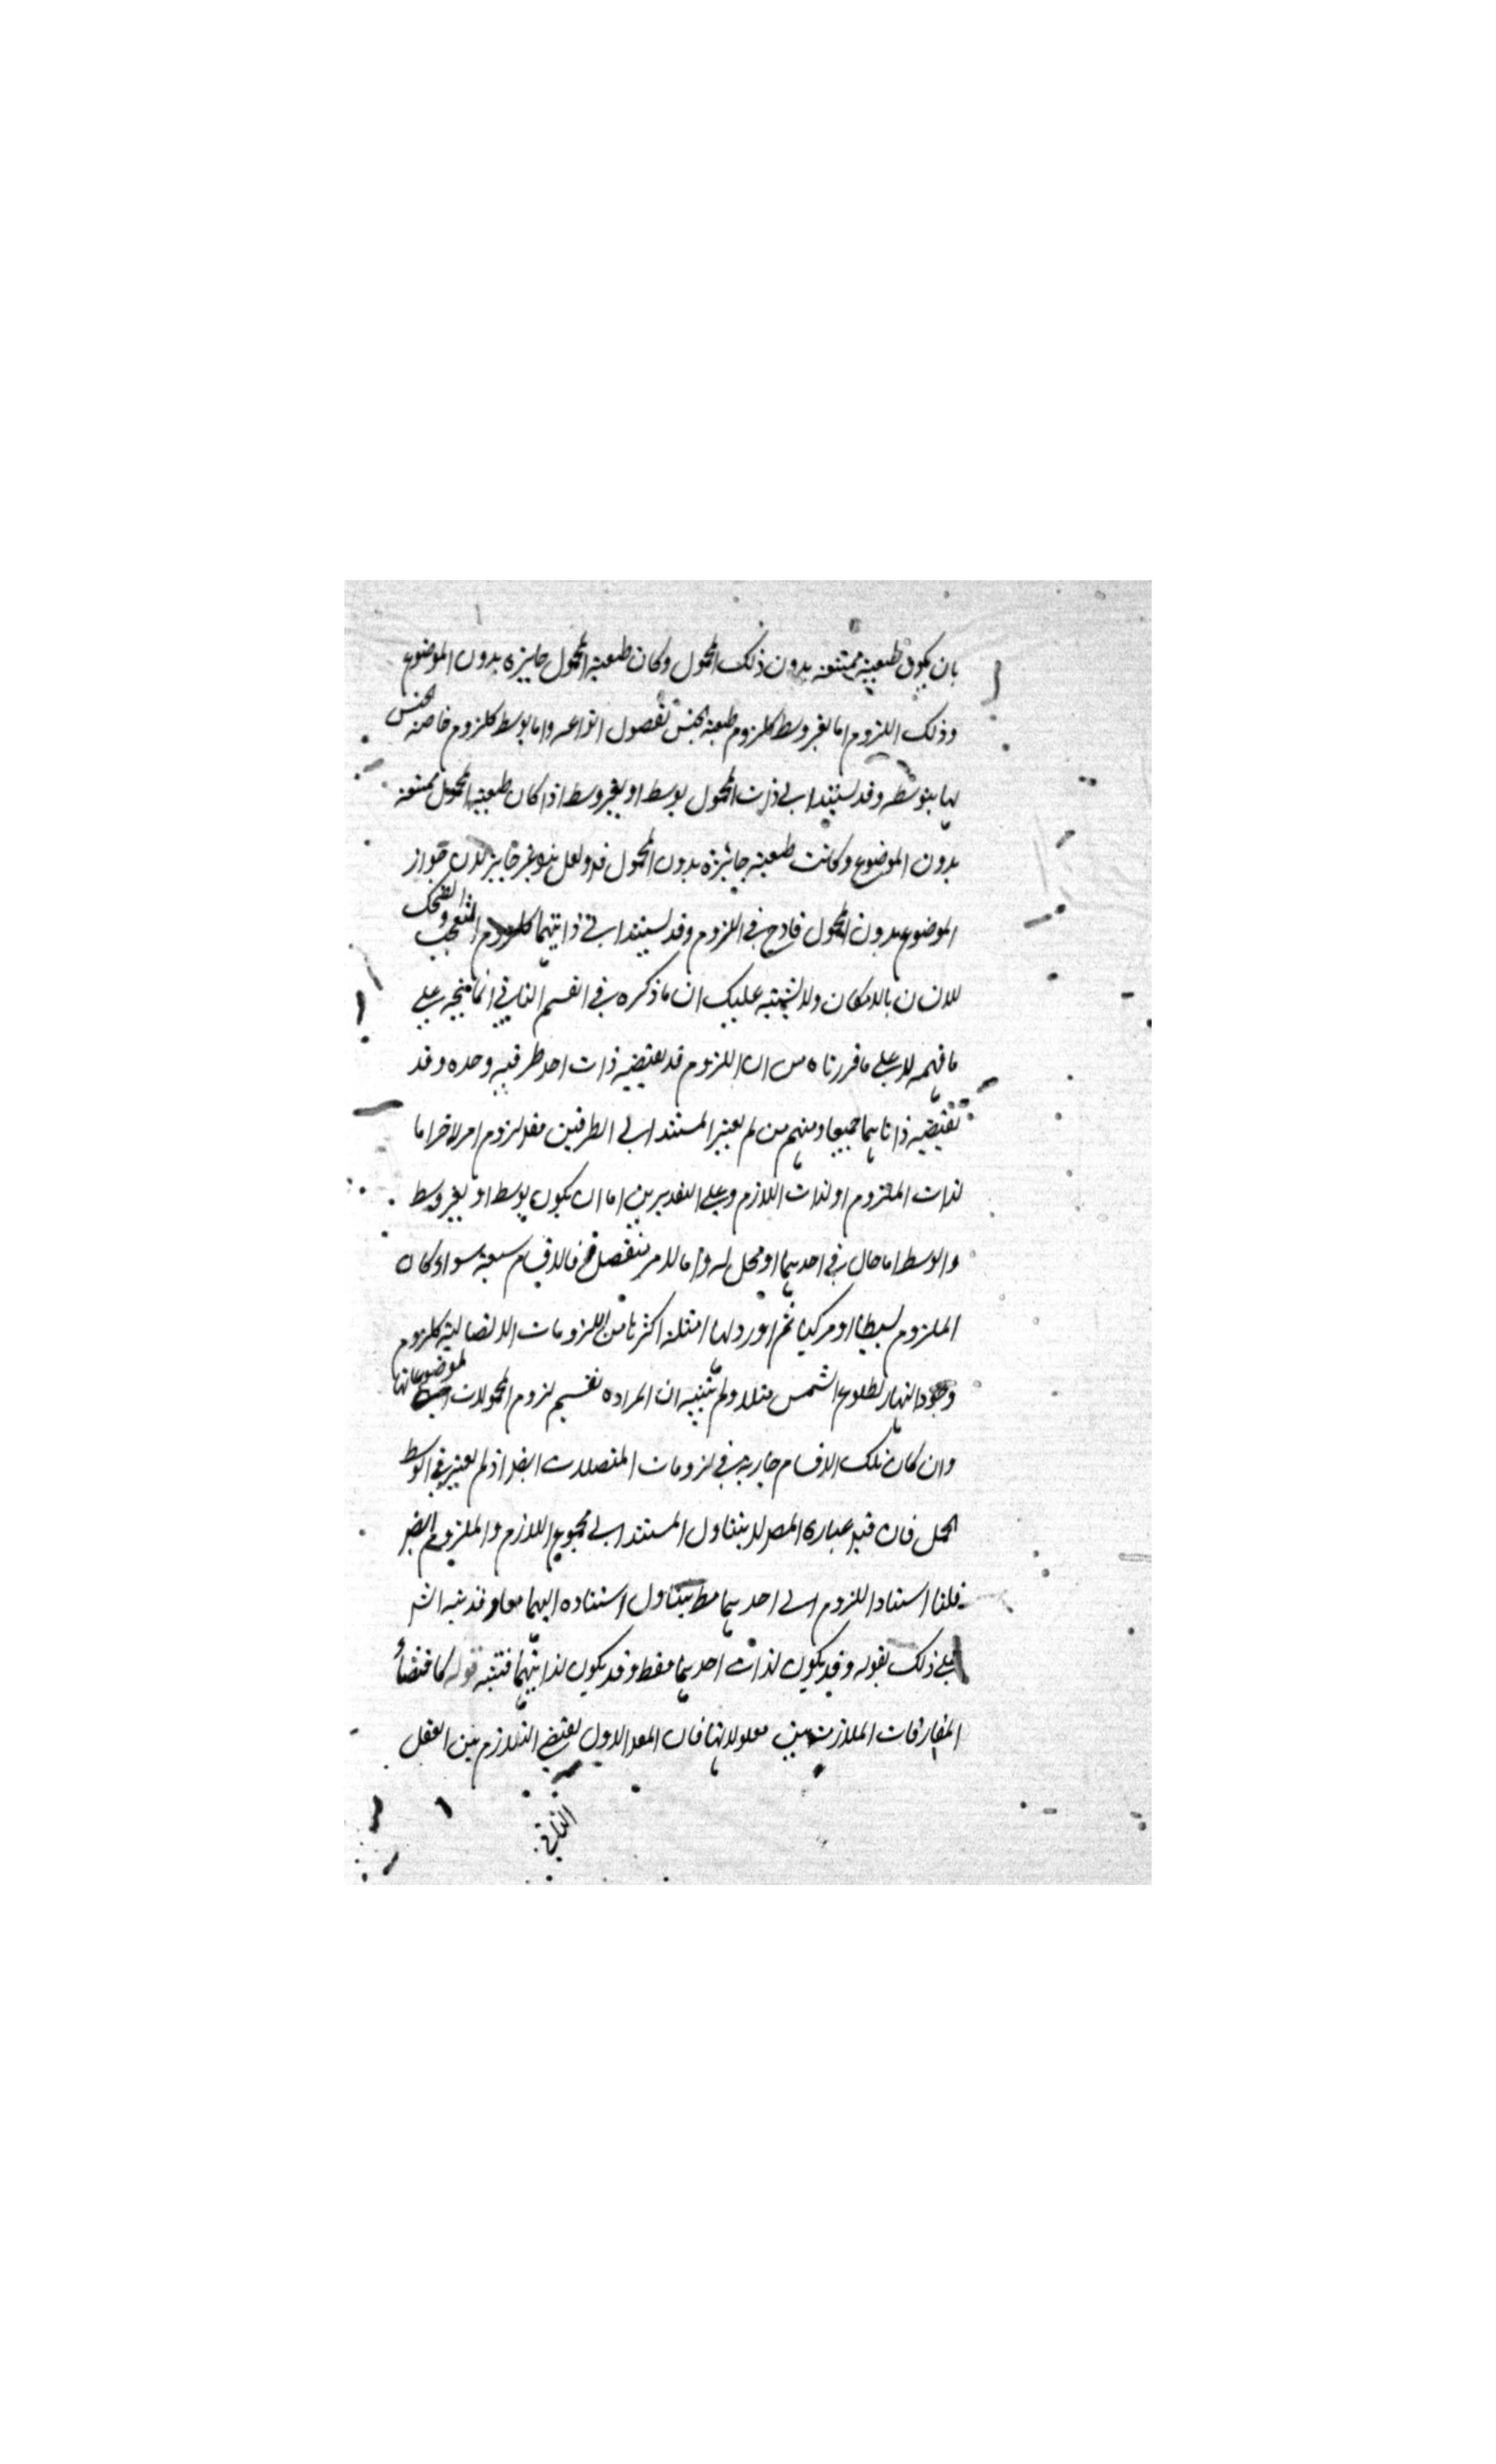 بان يكون طبيعته ممتنعه بدون ذلك المحمول وكان طبيعة المحمول جايزه بدون الموضوع
وذلك اللزوم اما بغير وسط كلزوم طبيعة الجنس لفصول انواعه واما بوسط كلزوم خاصة الجنس
لها بتوسطه وقد يستند الى ذات المحمول بوسط او بغير وسط اذا كان طبيعة المحمول ممتنعه
بدون الموضوع وكانت طبيعته جائزة بدون المحمول غير جايز لان جواز
الموضوع بدون المحمول قادح فى اللزوم وقد يستند الى ذاتيهما كلزوم التعجب والضحك
للانسان بالامكان ولا يشتبه عليك ان ما ذكره فى القسم الثانى انما يتجه على
ما فهمه لا على ما قررناه من ان اللزوم قد يقتضيه ذات احد طرفيه وحده وقد
تقتضيه ذاتاهما جميعا ومنهم من لم يعتبر المستند الى الطرفين فقال لزوم امر لاخر اما
لذات الملزوم او لذات اللازم وعلى التقديرين اما ان يكون بوسط او بغير وسط
والوسط اما حال فى احدهما او محل له واما لامر منفصل فالاقسام سبعة سواء كان
الملزوم بسيطا او مركبا ثم اورد لها امثلة اكثرها من اللزومات الاتصالية كلزوم
وجود النهار لطلوع الشمس مثلا ولم يتنبه ان المراد تقسيم لزوم المحمولات لموضوعاتها
وان كان تلك الاقسام جارية فى لزومات المتصلات ايضا اذ لم يعتبر فى الوسط
الحمل فان قيل عبارة المصر لا يتناول المستند الى مجموع اللازم والملزوم ايضا
قلنا استناد اللزوم الى احدهما مط يتناول استناده اليهما معا وقد نبه الش
على ذلك بقوله وقد يكون لذات احدهما فقط وقد يكون لذاتيهما فتنبه قوله كاقتضاء
المفارقات الملازمة بين معلولاتها فان المعلول الاول يقتضى التلازم بين العقل
الثانى